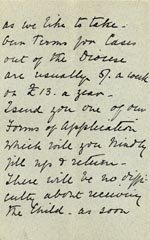 as we like to take.
Our Terms for Cases
out of the Diocese
are usually 5/. a week
or £13. a year.
I send you one of our
Forms of Application
which will you kindly
fill up & return.
There will be no diffi-
culty about receiving
the Child. as soon